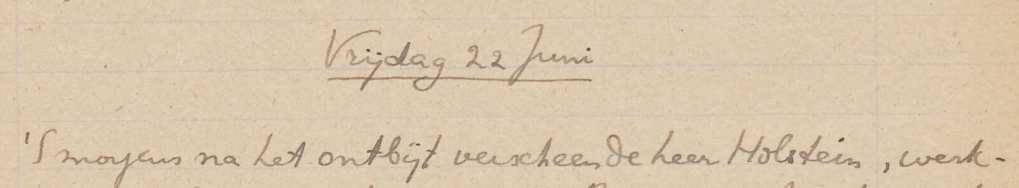 Vrijdag 22 Juni
'S morgens na het ontbijt verscheen de heer Holstein, werk-